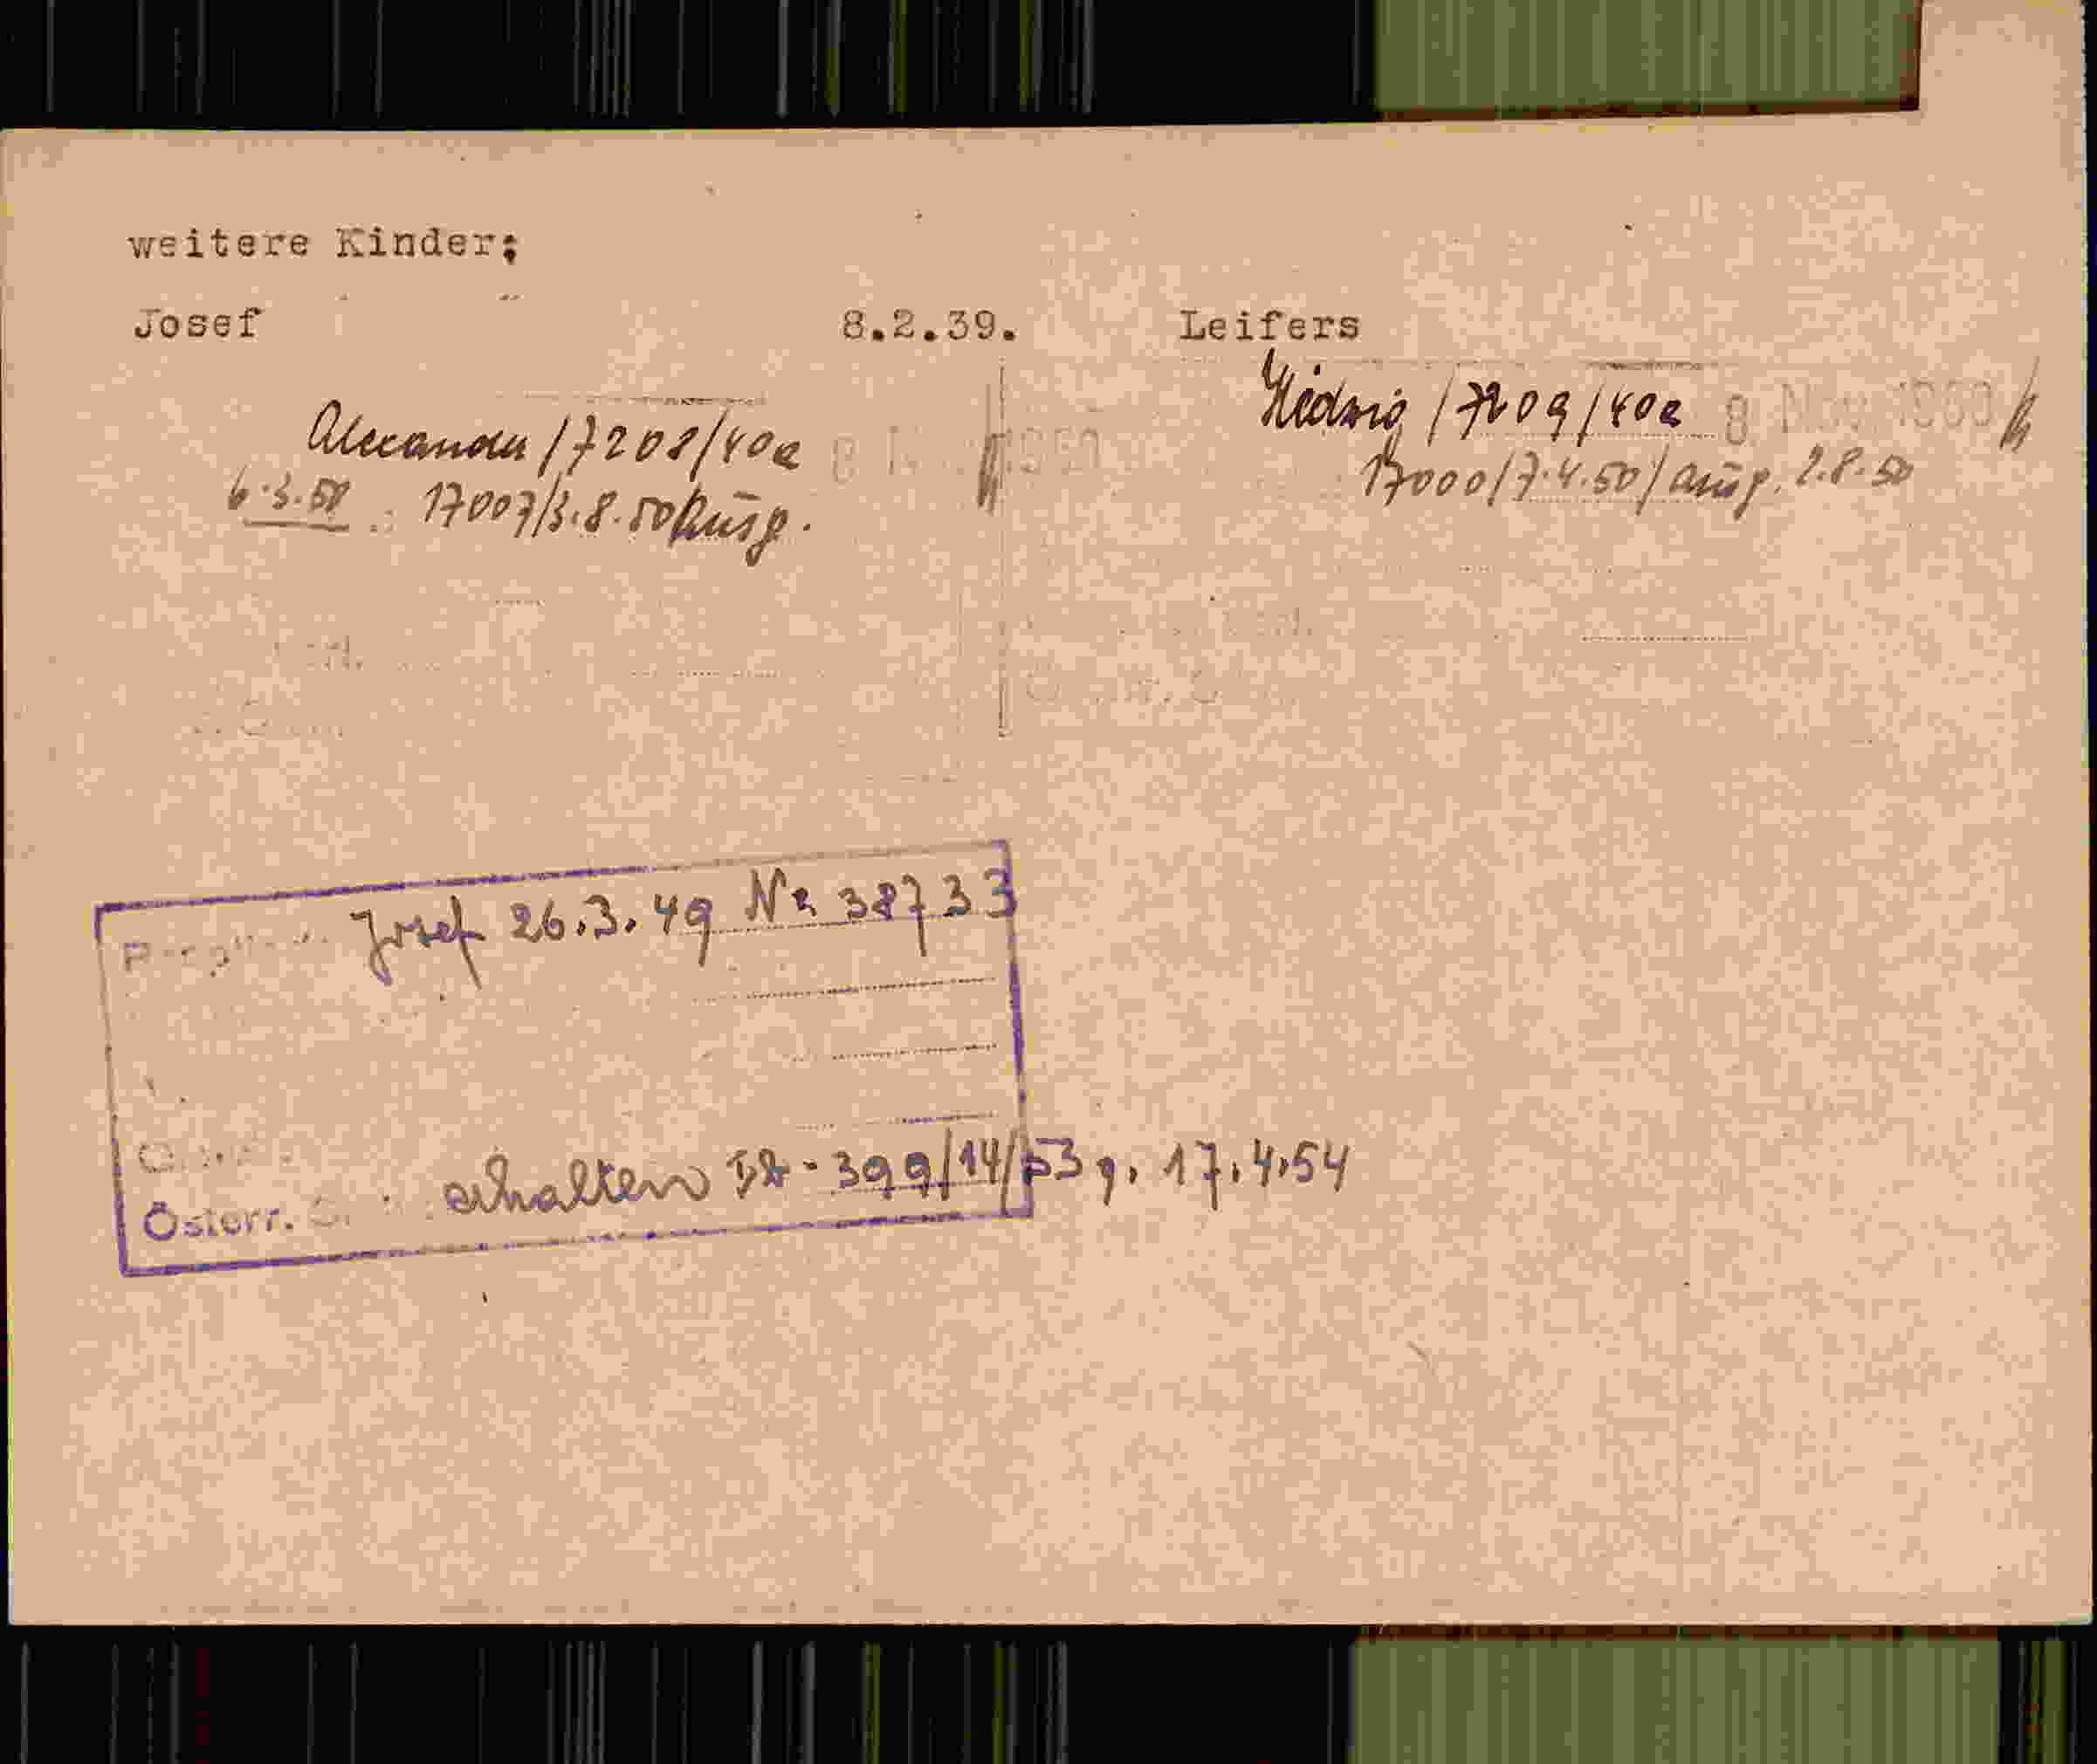 weitere Kinder;
Josef 8.2.39. Leifers
Alexander /7208/40a 8 Nov. 1950
6.3.50 17007/3.8.50 Ausg.
Hedwig /7209/40a 8 Nov. 1950
17000/7.4.50/Ausg. 2.8.50
Josef 26.3.49 Nr 38733
erhalten 399/14/53 g. 17.4.54
Österr.